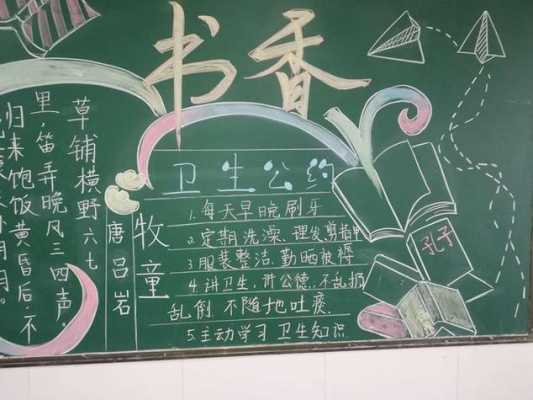 书香
牧童
唐 吕岩
草铺横野六七
里,笛弄晚风三四声。
归来饱饭黄昏后,不
卫生公约
1.每天早晚刷牙
2.定期洗澡、理发剪指甲
3服装整洁,勤晒被褥
4讲卫生,讲公德,不乱扔
乱倒,不随地吐痰
5.主动学习卫生知识
孔子